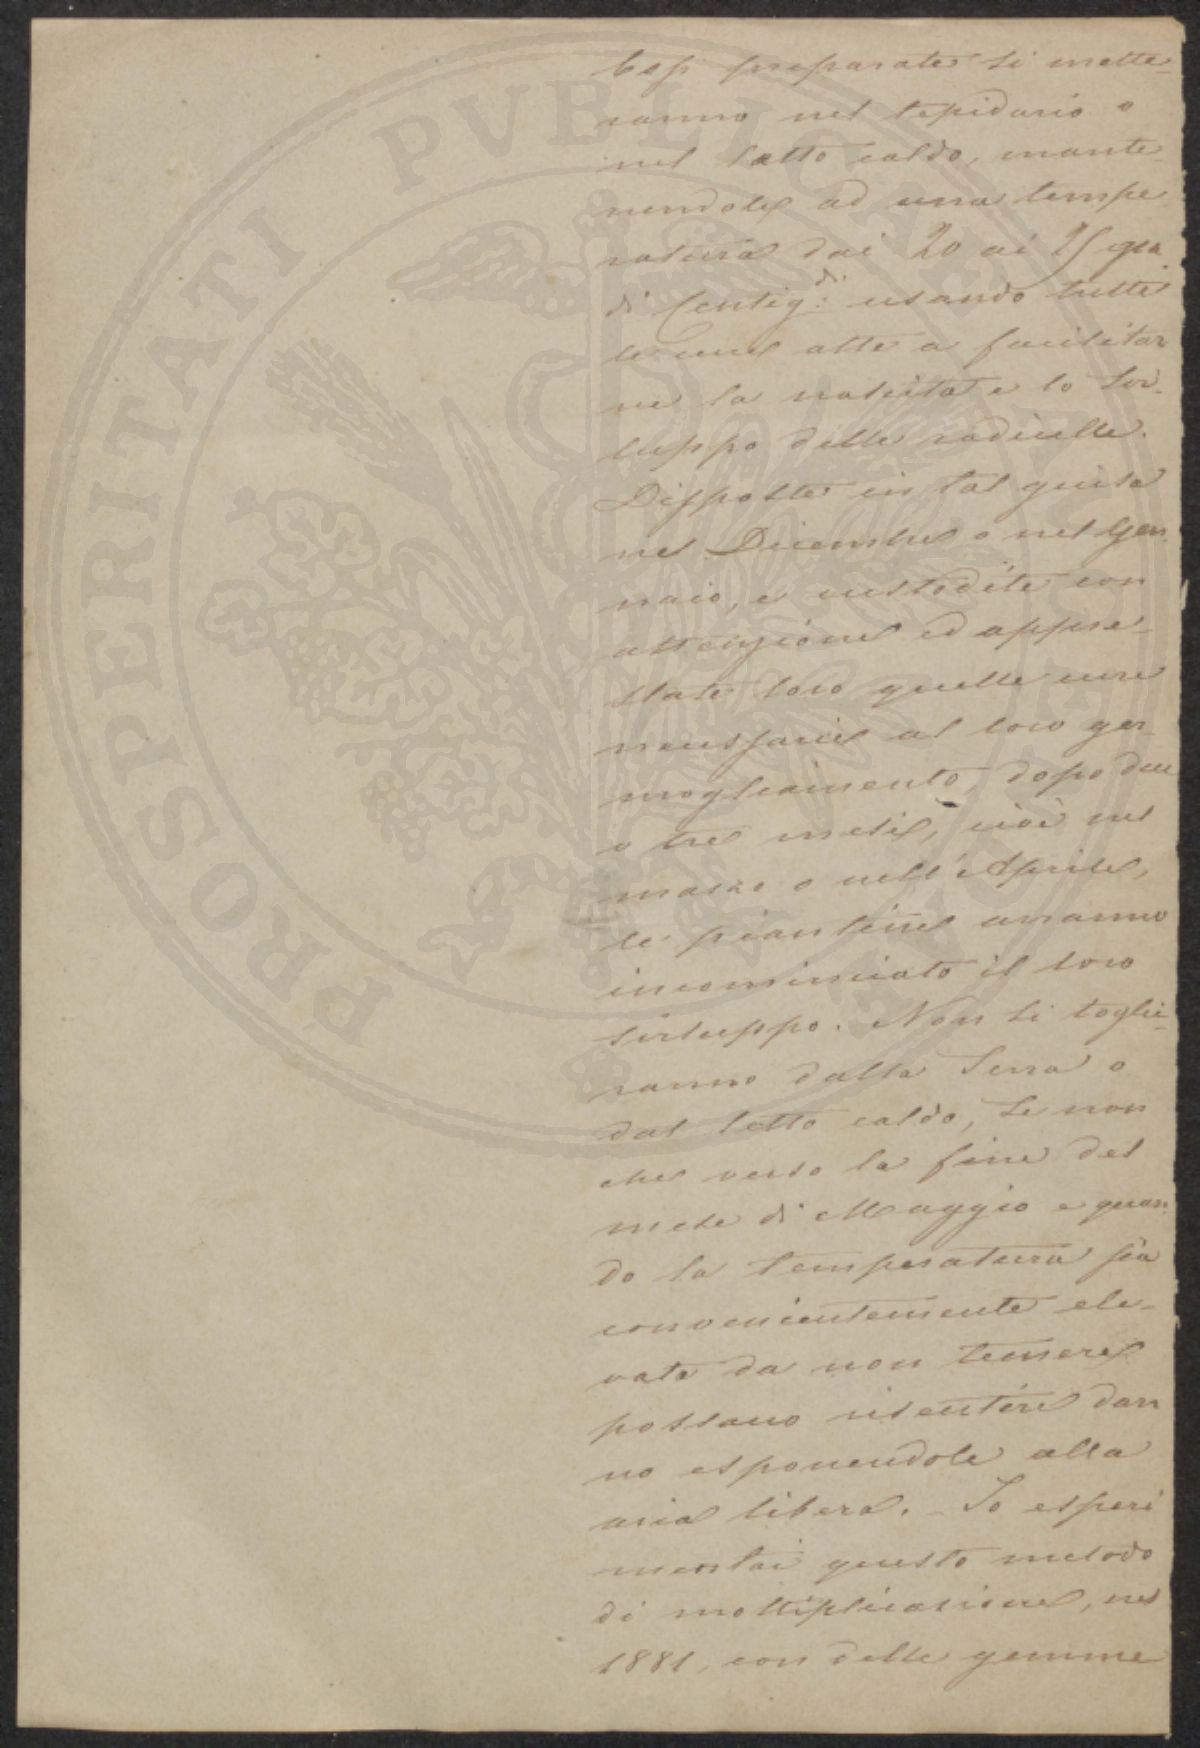 Così preparate si mette-
ranno nel tepidario o
nel letto caldo, mante-
nendole ad una tempe
ratura dai 20 ai 25 gra
di Centig.di usando tutte
le cure atte a facilitar
ne la nascita e lo svi-
luppo delle radicelle.
Disposte in tal guisa
nel Dicembre o nel Gen
naio, e custodite con
attenzione ed appre-
state loro quelle cure
necessarie al loro ger
mogliamento, dopo due
o tre mesi, cioè nel
marzo o nell'Aprile,
le piantine avranno
incominciato il loro
sviluppo. Non si toglie-
ranno dalla Serra o
dal letto caldo, se non
che verso la fine del
mese di Maggio e quan
do la temperatura sia
convenientemente ele-
vata da non temere
possano risentire dan
no esponendole alla
aria libera. - Io esperi
mentai questo metodo
di moltiplicazione, nel
1881, con delle gemme
PROSPERITATI PVBLICAE